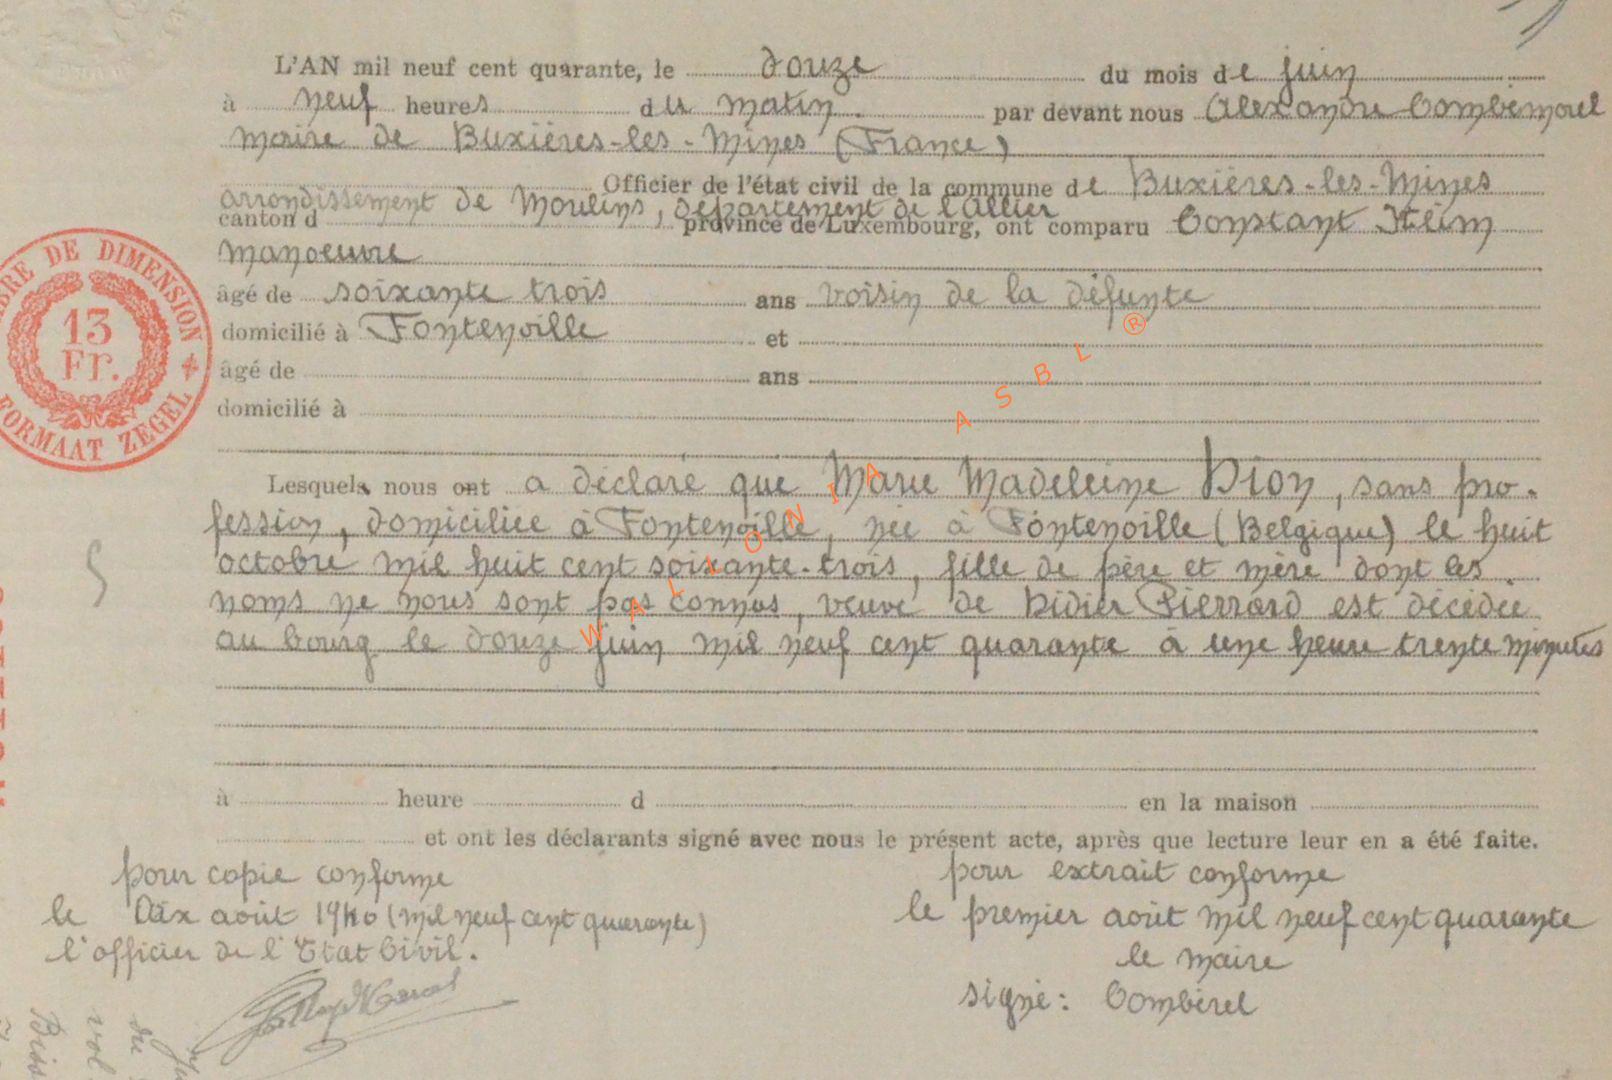 L'AN mil neuf cent quarante, le douze du mois de juin
à neuf heures du matin. par devant nous Alexandre Combémorel
maire de Buxières-les-Mines (France)
Officier de l'état civil de la commune de Buxières-les-Mines
arrondissement de Moulins, département de l'Allier
canton d province de Luxembourg, ont comparu Constant
manoeuvre
âgé de soixante trois ans voisin de la défunte
domicilié à Fontenoille et
âgé de ans
domicilié à
Lesquels nous ont a déclaré que Marie Madeleine Dion, sans pro-
fession, domiciliée à Fontenoille, née à Fontenoille (Belgique) le huit
octobre mil huit cent soixante-trois, fille de père et mère dont les
noms ne nous sont pas connus, veuve de Didier Pierrard est décédée
au bourg le douze juin mil neuf cent quarante à une heure trente minutes
à heure d en la maison
et ont les déclarants signé avec nous le présent acte, après que lecture leur en a été faite.
pour copie conforme
le Dix août 1940 (mil neuf cent quarante)
l'officier de l'Etat Civil.
pour extrait conforme
le premier août mil neuf cent quarante
le maire
signé: Combérel
DE DIMENSION
13
Fr.
FORMAAT ZEGEL
WALLONIA ASBL ®
du
vol